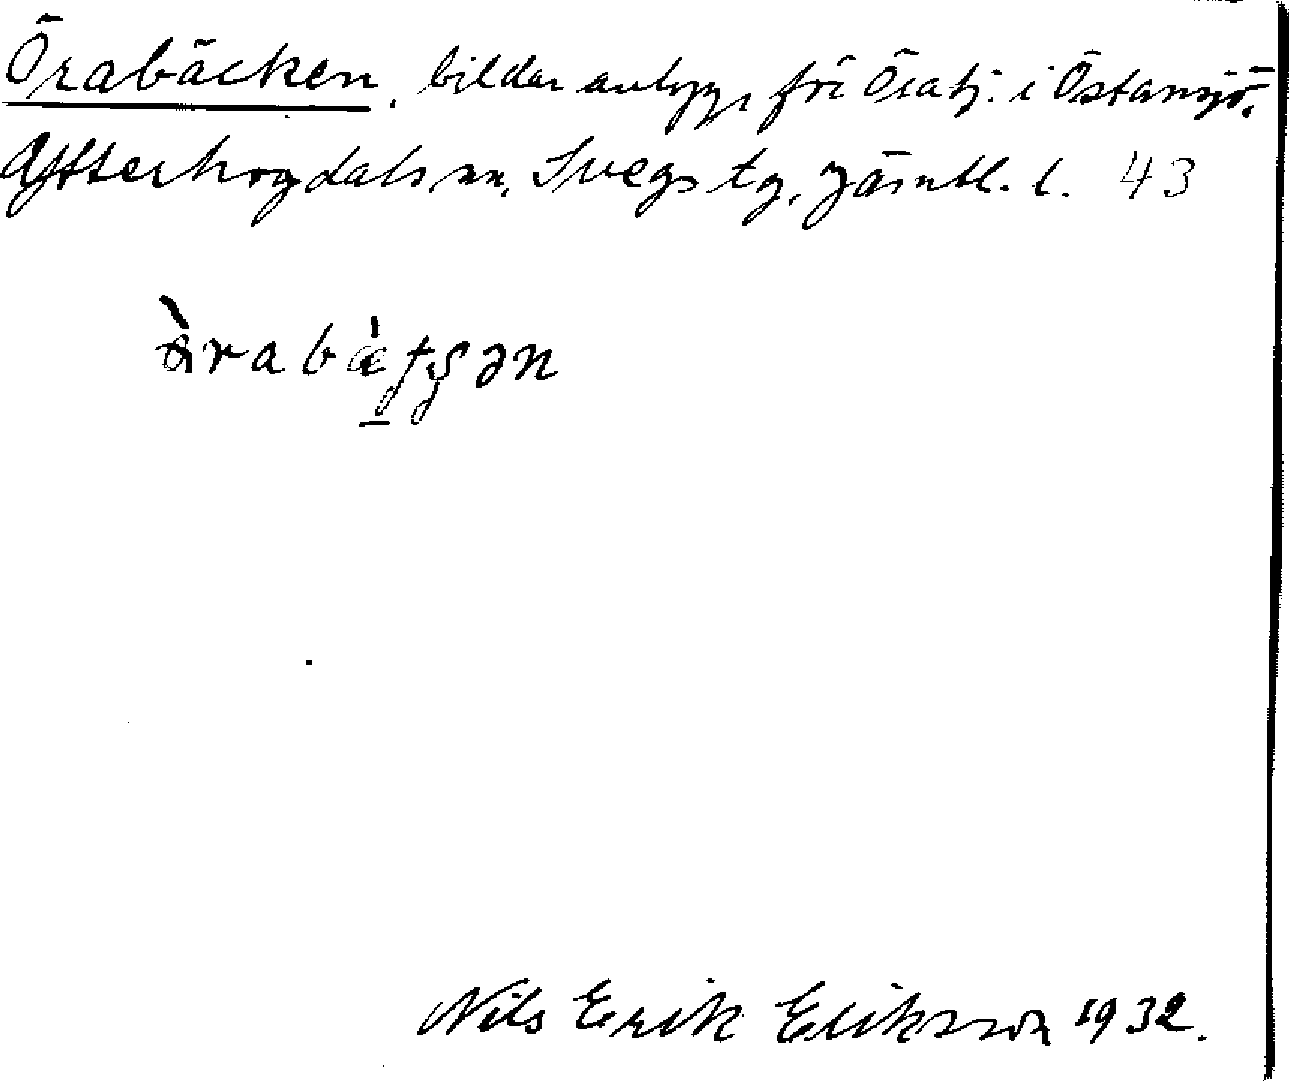 Örabäcken, bildar avlopp för Öratj. i Östansjö.
Ytterhogdals sn, Svegs tg, Jämtl. l. 43
Nils Erik Eriksson 1932.